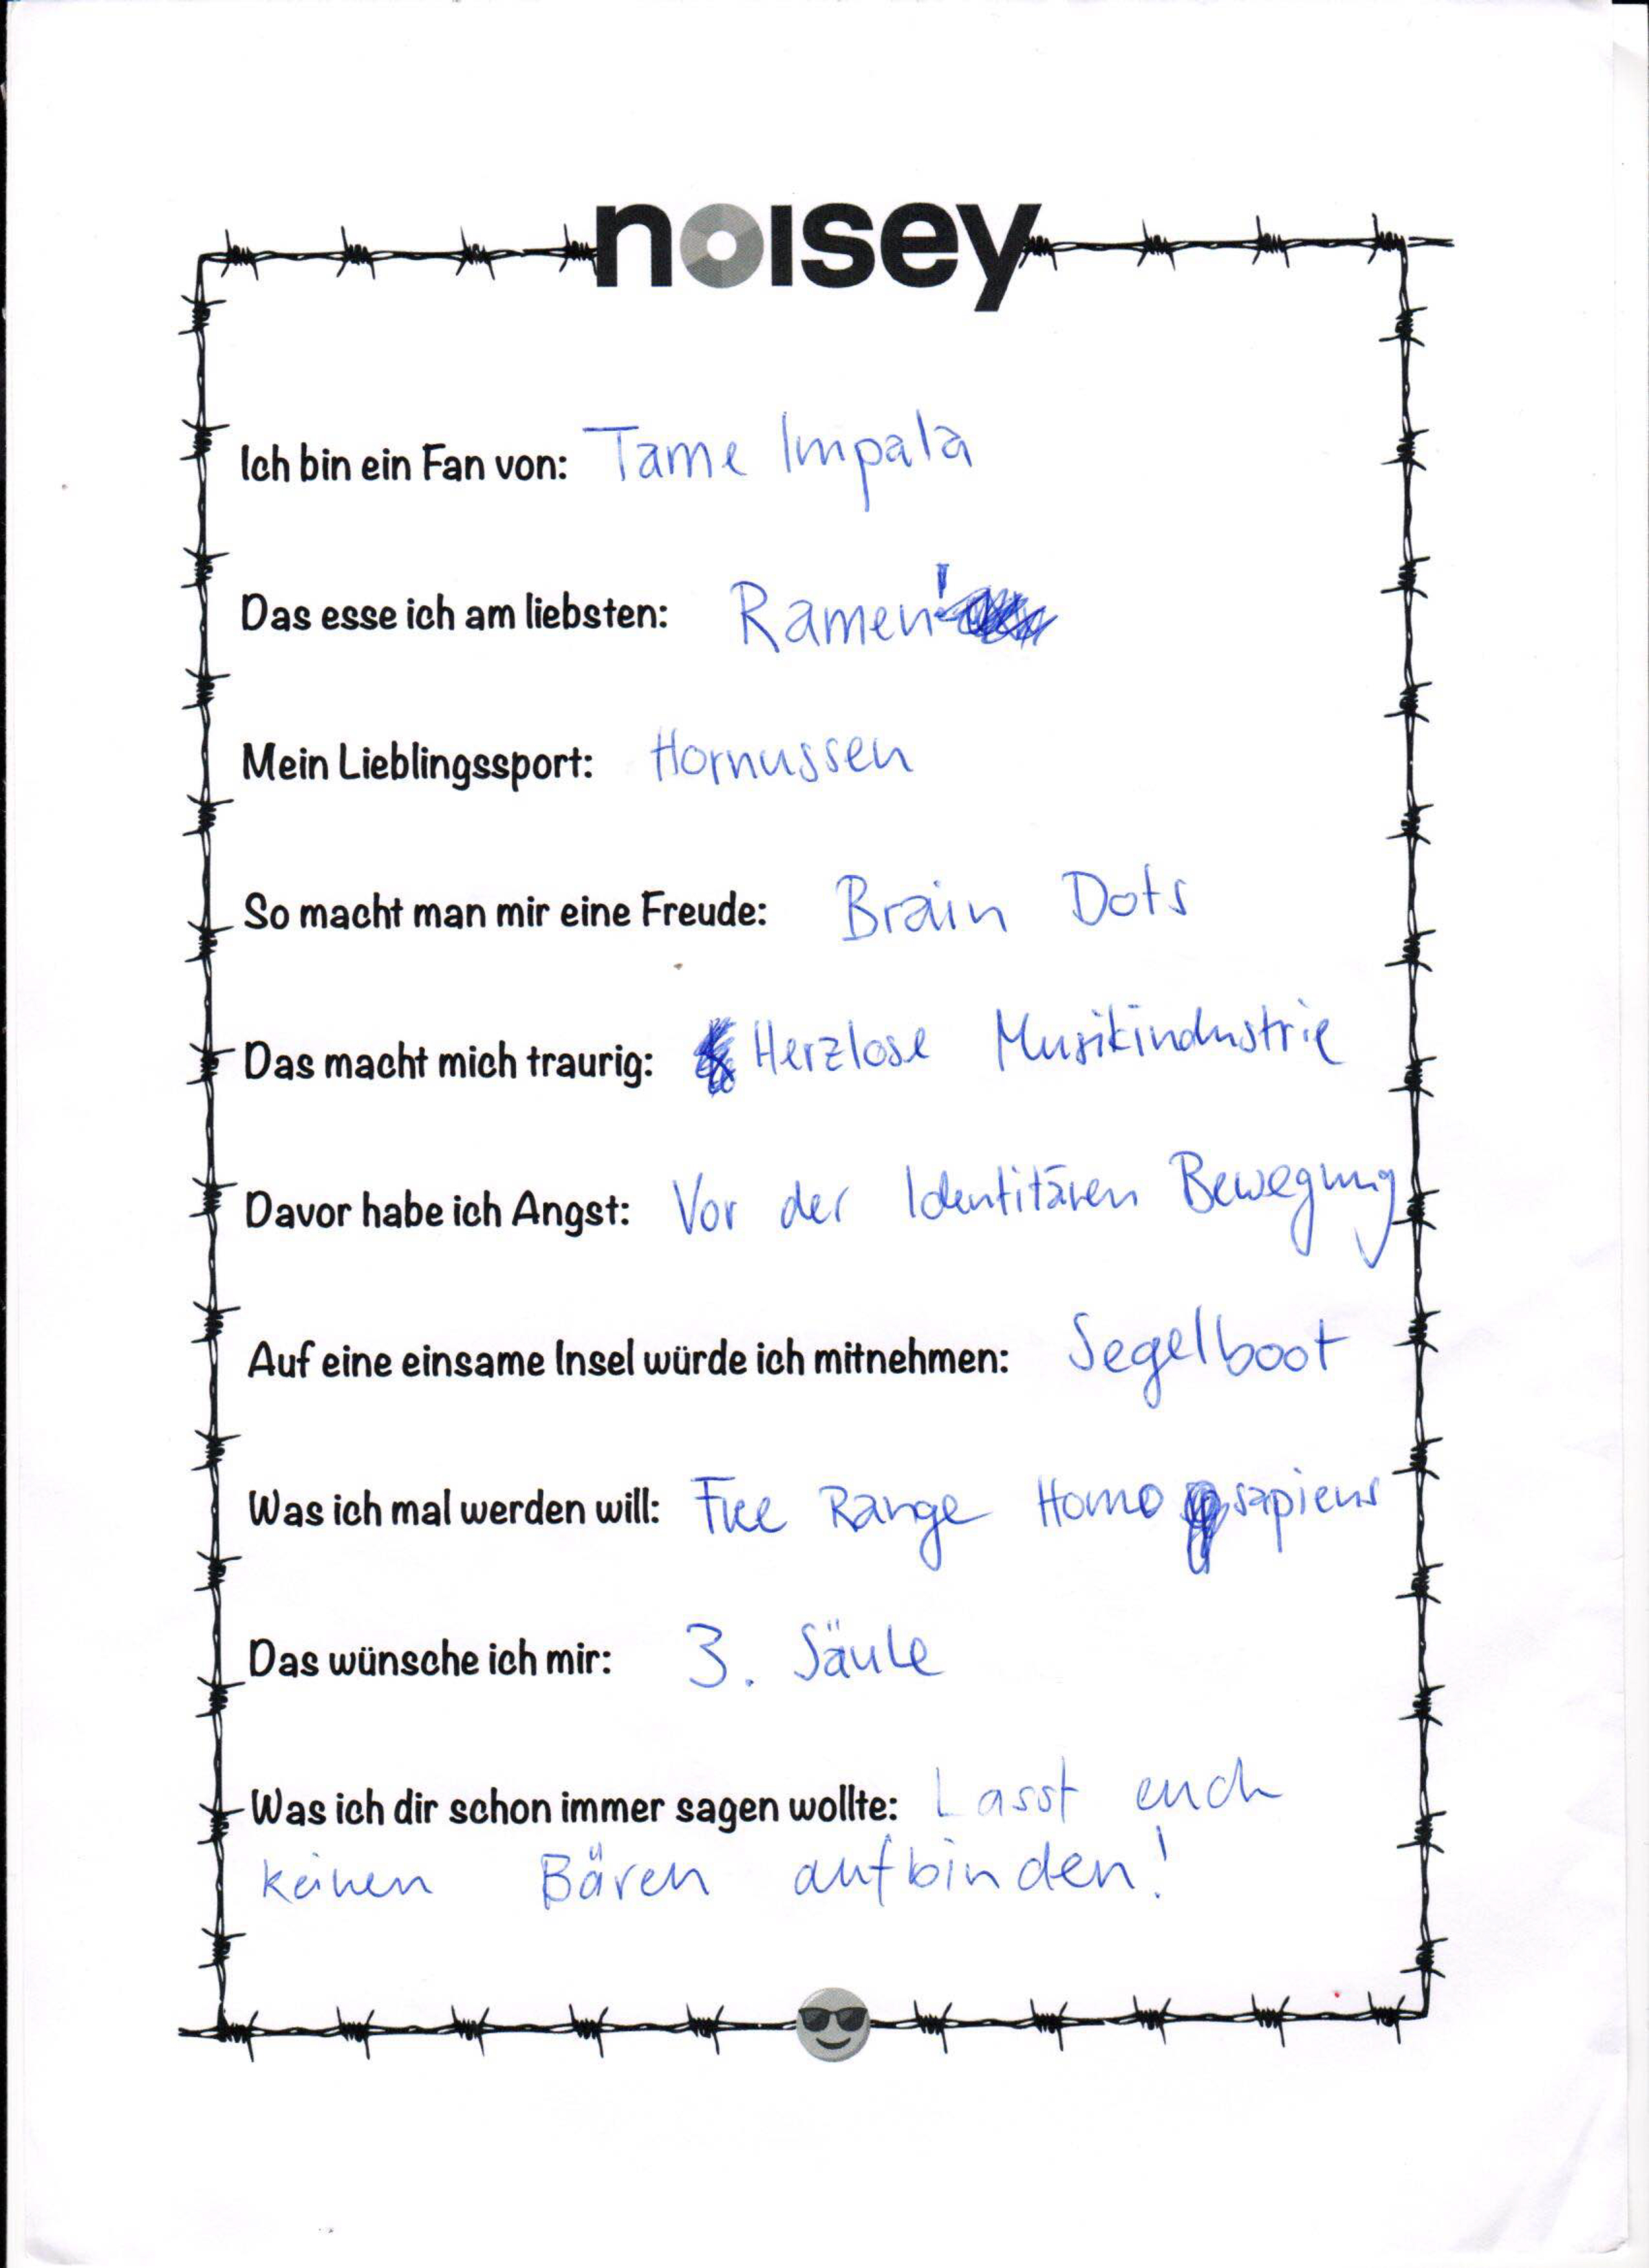 noisey
Ich bin ein Fan von: Tame Impala
Das esse ich am liebsten: Ramen!
Mein Lieblingssport: Hornussen
So macht man mir eine Freude: Brain Dots
Das macht mich traurig: Herzlose Musikindustrie
Davor habe ich Angst: Vor der Identitären Bewegung
Auf eine einsame Insel würde ich mitnehmen: Segelboot
Was ich mal werden will: Free Range Homo sapiens
Das wünsche ich mir: 3. Säule
Was ich dir schon immer sagen wollte: Lasst euch
keinen Bären aufbinden!